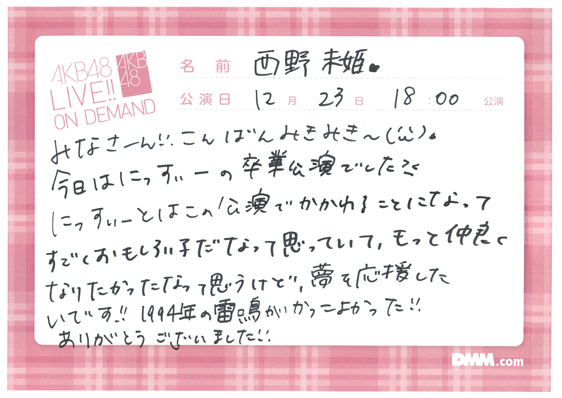 AKB48
LIVE!!
ON DEMAND
AKB
48
名前 西野 未姫
公演日 12月 23日 18:00 公演
みなさーん!!こんばんみきみき〜(ω)。
今日はにっすぃーの卒業公演でした
にっすぃーとはこの公演でかかわることになって
すごくおもしろい子だなって思っていて、もっと仲良く
なりたかったなって思うけど、夢を応援した
いです!! 1994年の雷鳴がかっこよかった!!
ありがとうございました!!
DMM.com